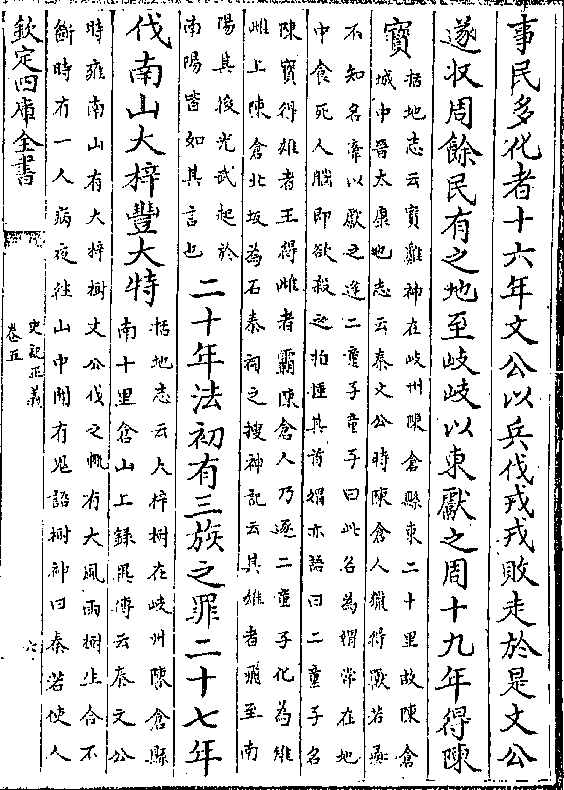 事民多化者十六年文公以兵伐戎戎敗走於是文公
遂收周餘民有之地至岐岐以東獻之周十九年得陳
寶
括地志云寶雞神在岐州陳倉縣東二十里故陳倉
城中晉太康地志云秦文公時陳倉人獵得獸若彘
不知名牽以獻之逢二童子童子曰此名為媦常在地
中食死人腦即欲殺之拍捶其首媦亦語曰二童子名
陳寶得雄者王得雌者霸陳倉人乃逐二童子化為雉
雌上陳倉北坂為石秦祠之搜神記云其雄者飛至南
陽其後光武起於
南陽皆如其言也
二十年法初有三族之罪二十七年
伐南山大梓豐大特
括地志云大梓樹在岐州陳倉縣
南十里倉山上録異傳云秦文公
時雍南山有大梓樹文公伐之輒有大風雨樹生合不
斷時有一人病夜往山中聞有鬼語樹神曰秦若使人
欽定四庫全書
史記正義
卷五
六